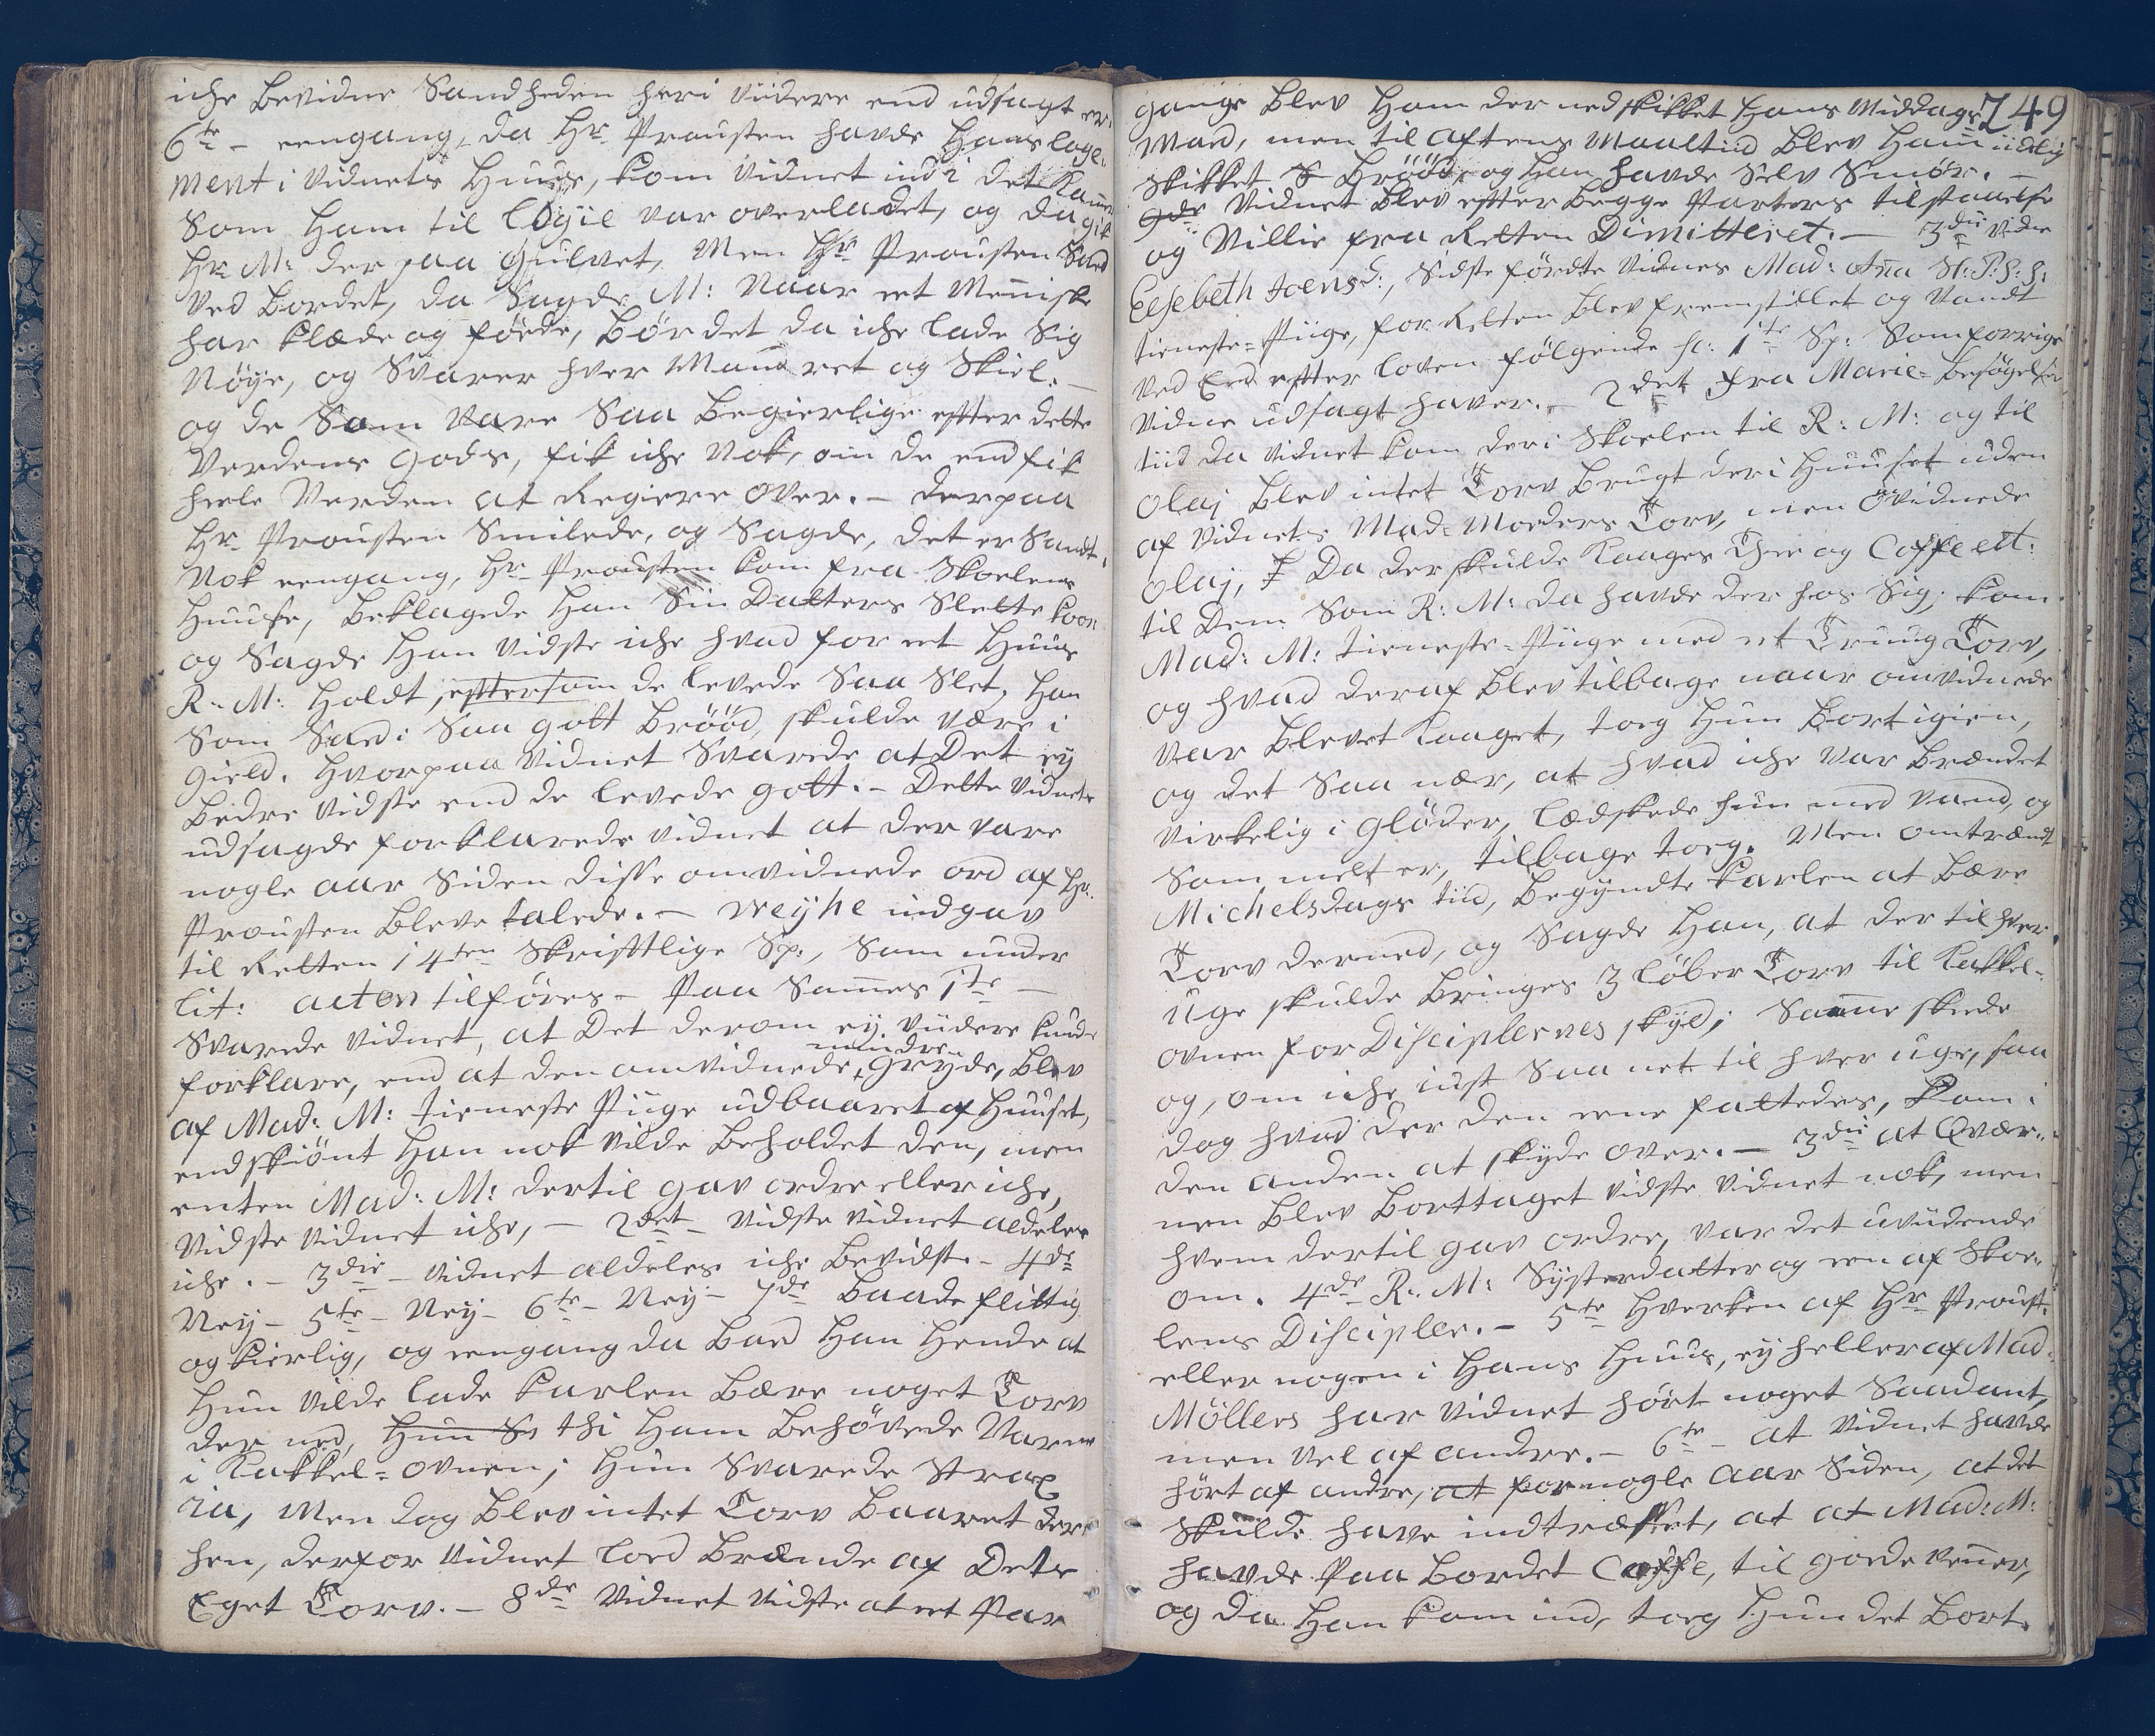 iche bevidne Sandheden heri viidere end udsagt er.
6te – eengang, da Hr Prousten havde Hans loge-
ment i Vidnets Huus, kom Vidnet ind i det Kammer
Som Ham til loyie var overladet, og da gik
Hr M: der paa Gulvet, Men Hr Prousten Sad
ved Bordet, da Sagde M: Naar et Menniske
har klæde og föede, bör det da iche lade Sig
Nöye, og Svarer hver Mand ret og Skiel. –
og de Som vare Saa begierlige effter dette
Verdens gods, fik iche Nok, om de end fik
heele Verden at Regiere over. – derpaa
Hr Prousten Smilede, og Sagde, det er Sandt.
Nok eengang, Hr Prousten kom fra Skoelens
Huuse, beklagede Han Sin Datters Slette Koor
og Sagde Han vidste iche hvad for et Huus
R: M: Holdt, efftersom de levede Saa Slet, Han
Som Sad i Saa gott bröód, skulde være i
gield. Hvorpaa Vidnet Svarede at Det ey
bedre vidste end de levede gott. – Dette Vidnets
udsagde forklarede Vidnet at der vare
nogle aar Siden disse omvidnede ord af Hr.
Prousten bleve talede. – Weyhe indgav
til Retten 14ten Skrifftlige Sp:, Som under
lit: acten tilföres – Paa Sammes 1te –
Svarede Vidnet, at Det derom ey viidere kunde
forklare, end at den omvidnede mindre Gryde, blev
af Mad: M: tieneste Piige udbaaret af Huuset,
endskiönt Han nok vilde beholdet den, men
enten Mad: M: dertil gav ordre eller iche,
vidste Vidnet iche, – 2det – vidste Vidnet aldeles
iche. – 3die – Vidnet aldeles iche bevidst – 4de
Ney – 5te – Ney – 6te – Ney – 7de baade flittig
og kierlig, og eengang da bad Han Hende at
Hun vilde lade Karlen bære noget Torv
der ned, Hun S thi Ham behövede Varme
i Kakkel-ovnen; Hun Svarede Strax
ia, Men dog blev intet Torv baaret der
hen, derfor Vidnet loed brænde af Dets
Eget Torv. – 8de Vidnet vidste at et Par
749
gange blev Ham der nedskikket Hans Middags
Mad, men til Afftens Maaltiid blev Ham iidelig
Skikket S bröód, og Han havde Selv Smör. –
9de Vidnet blev effter begge Parters tilstaaelse
og Villie fra Retten Dimitteret. – 3die Vidne
Elsebeth Joensd:, Sidst fördte Vidnes Mad: Ana St: P: h: h:
tieneste-Piige, for Retten blev fremstillet og vandt
ved Eed effter loven fölgende St: 1te Sp: Som forrige
Vidne udsagt haver. – 2det fra Marie-besögelses
tiid da Vidnet kom der i Skoelen til R: M: og til
Olaj blev intet Torv brugt der i Huuset uden
af Vidnets Mad: Moeders Torv, men omvidnede
Olaj, Da der skulde Kaages Thee og Coffe ett:
til Dem Som R: M: da havde der hos Sig, kom
Mad: M: tieneste-Piige med et Truug Torv,
og hvad deraf blev tilbage naar omvidnede
var blevet Kaaget, toeg Hun bort igien,
og det Saa nær, at hvad iche var brændet
virkelig i Glöder, lædskede hun med vand, og
Som melt er, tilbage toeg. Men omtrændt
Michelsdags tiid, begyndte Karlen at bære
Torv derned, og Sagde Han, at der til hver
uge skulde bringes 3 löber Torv til Kakkel-
ovnen for Disciplernes skyld; Samme skede
og, om iche iust Saa net til hver uge, saa
dog hvad der den eene fattedes, kom i
den anden at skyde over. – 3die at Qvær-
nen blev borttaget vidste Vidnet nok, men
hvem dertil gav ordre, var det uviidende
om. 4de R: M: Systerdatter og een af Skoe-
lens Discipler. – 5te Hverken af Hr Proust:
eller nogen i Hans Huus, ey heller af Mad:
Möllers har Vidnet hört noget Saadant,
men vel af andre. – 6te – at Vidnet havde
hört af andre, at for nogle Aar Siden, at det
Skulde have indtræffet, at at Mad: M:
havde Paa bordet Coffe, til goede venner,
og da Han kom ind, toeg Hun det bort.